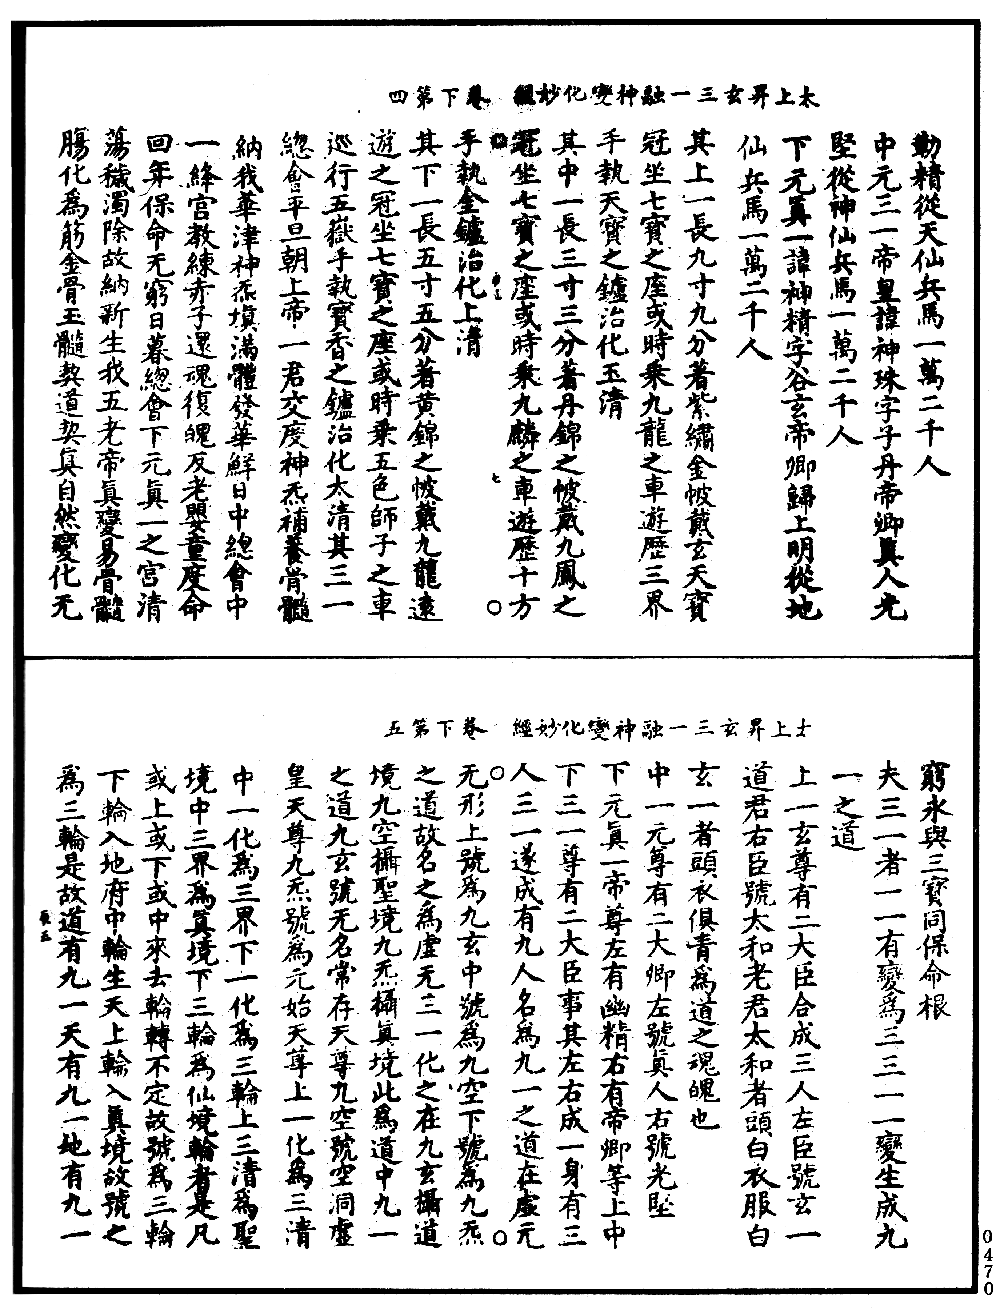 太上昇玄三一融神變化妙經　卷下第四
勤精從天仙兵馬一萬二千人
中元三一帝皇諱神珠字子丹帝卿眞人光
堅從神仙兵馬一萬二千人
下元眞一諱神精字谷玄帝卿歸上明從地
仙兵馬一萬二千人
其上一長九寸九分著紫繡金帔戴玄天寶
冠坐七寶之座或時乘九龍之車遊歷三界
手執天寶之鑪治化玉清
其中一長三寸三分著丹錦之帔戴九鳳之
冠坐七寶之座或時乘九麟之車遊歷十方
手執金鑪治化上清
其下一長五寸五分著黃錦之帔戴九龍遠
遊之冠坐七寶之座或時乘五色師子之車
巡行五嶽手執寶香之鑪治化太清其三一
總會平旦朝上帝一君交度神炁補養骨髓
納我華津神炁塡滿體發華鮮日中總會中
一絳宮教練赤子還魂復魄反老嬰童度命
回年保命无窮日暮總會下元眞一之宮清
蕩穢濁除故納新生我五老帝眞變易骨髓
腸化爲筋金骨玉髓契道契眞自然變化无
太上昇玄三一融神變化妙經　卷下第五
窮永與三寶同保命根
夫三一者一一有變爲三三一一變生成九
一之道
上一玄尊有二大臣合成三人左臣號玄一
道君右臣號太和老君太和者頭白衣服白
玄一者頭衣俱青爲道之魂魄也
中一元尊有二大卿左號眞人右號光堅
下元眞一帝尊左有幽精右有帝卿等上中
下三一尊有二大臣事其左右成一身有三
人三一遂成有九人名爲九一之道在虛无
无形上號爲九玄中號爲九空下號爲九炁
之道故名之爲虛无三一化之在九玄攝道
境九空攝聖境九炁攝眞境此爲道中九一
之道九玄號无名常存天尊九空號空洞虛
皇天尊九炁號爲元始天尊上一化爲三清
中一化爲三界下一化爲三輪上三清爲聖
境中三界爲眞境下三輪爲仙境輪者是凡
或上或下或中來去輪轉不定故號爲三輪
下輪入地府中輪生天上輪入眞境故號之
爲三輪是故道有九一天有九一地有九一
0470